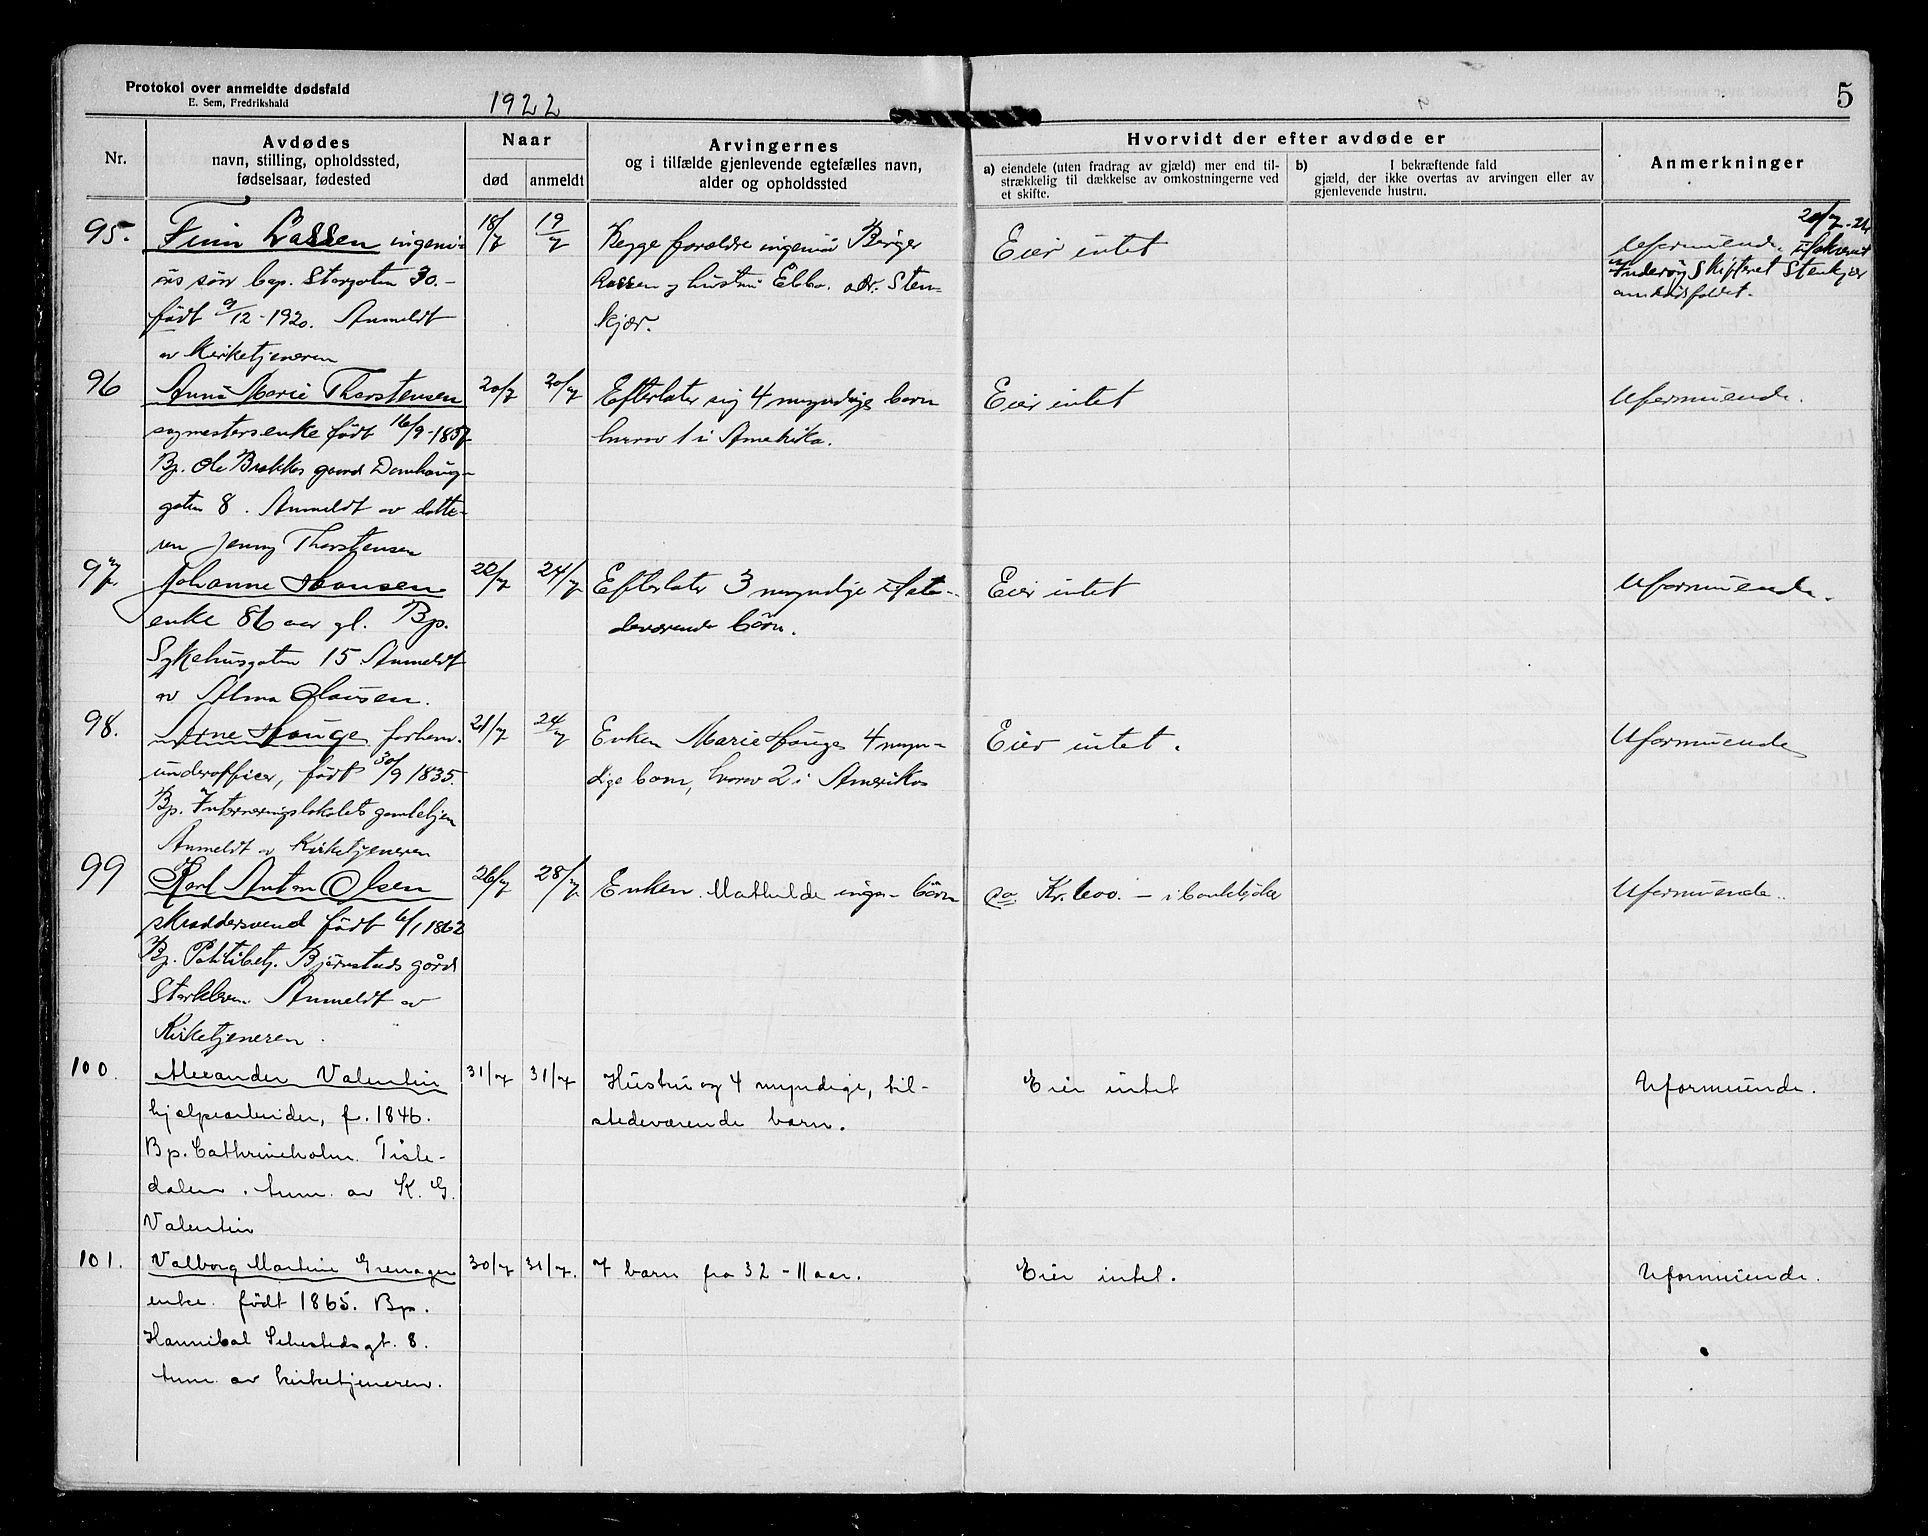 Protokol over anmeldte dødsfald
E. Sem, Fredrikshald
1922
5
Nr.
Avdødes
navn, stilling, opholdssted,
fødselsaar, fødested
Naar
død
anmeldt
Arvingernes
og i tilfælde gjenlevende egtefælles navn,
alder og opholdssted
Hvorvidt der efter avdøde er
a) eiendele (uten fradrag av gjæld) mer end til-
strækkelig til dækkelse av omkostningerne ved
et skifte.
b) I bekræftende fald
gjæld, der ikke overtas av arvingen eller av
gjenlevende hustru.
Anmerkninger
95.
Finn Lassen ingeni-
örs sön bop. Storgaten 30.-
född 9/12-1920. Anmeldt
av Kirketjeneren
18/7
19/7
Begge forældre ingeniör Birger
Lassen og hustru Ebba. adr. Sten-
kjær.
Eier intet
20/7-22
Uformuende.
Inderöy Skifteret Stenkjær
om dödsfaldet.
96
Anna Marie Thorstensen
sagmestersenke födt 16/9-1857
Bp. Ole Brekkes gaard Damhaug-
gaten 8. Anmeldt av datte-
ren Jenny Thorstensen
20/7
20/7
Efterlater sig 4 myndige barn
hvorav 1 i Amerika.
Eier intet
Uformuende.
97.
Johanne Hansen
enke 86 aar gl. Bp.
Sykehusgaten 15 Anmeldt
av Alma Hansen.
22/7
24/7
Efterlater 3 myndige tilste-
deværende börn.
Eier intet
Uformuende.
98.
Arne Hauge forhenv.
underofficer, födt 30/9 1835.
Bp. Interneringslokalets gamlehjem
Anmeldt av Kirketjeneren
21/7
24/7
Enken Marie Hauge 4 myn-
dige barn, hvorav 2 i Amerika
Eier intet.
Uformuende
99
Karl Anton Olsen
skræddersvend födt 6/1 1862
Bp. Politibetj. Björnstads gård
Storkleven. Anmeldt av
Kirketjeneren.
26/7
28/7
Enken Mathilde ingen börn
ca. Kr. 600.- i bankböker
Uformuende.
100.
Alexander Valentin
hjelpearbeider, f. 1846.
Bp. Cathrineholm. Tiste-
dalen. Anm. av K. G.
Valentin
31/7
31/7
Hustru og 4 myndige, til-
stedeværende barn.
Eier intet
Uformuende.
101.
Valborg Martine Grenager
enke. födt 1865. Bp.
Hannibal Sehestedsgt. 8.
Anm. av kirketjeneren.
30/7
31/7.
7 barn fra 32-11 aar.
Eier intet.
Uformuende.